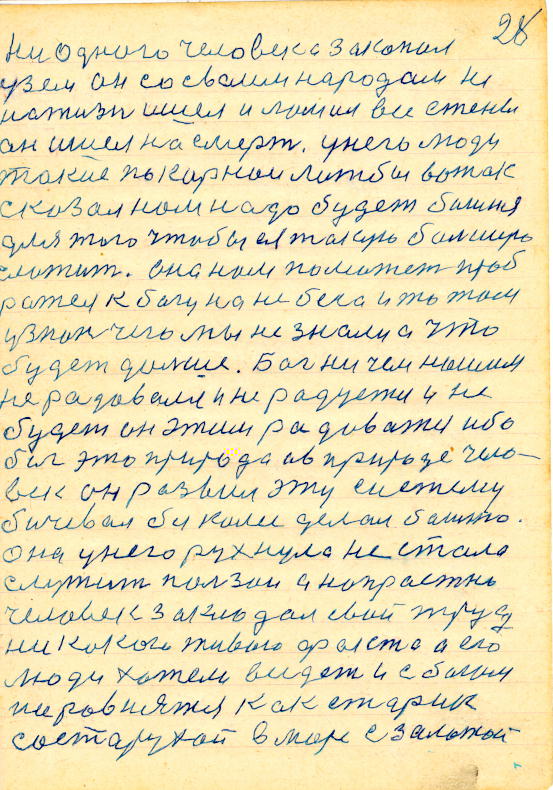 28
ни одного человека закопал
узем он со сваим народам не
на жизн ишел и ломил все стены
он ишел на смерт. у него люди
такие покарнои
сказал нам надо будет башня
для того чтобы ея такую
она нам поможет проб
ратся к богу на небеса и то там
узнаи чего мы не знали а что
будет далше. Бог ни чем нашим
не радовалси и не радуетси и не
будет он этим радоватси ибо
бог это природа а в природе чело-
век он развил эту систему
делал башню.
Она у него рухнула не стала
служит ползои а напрастно
человек закладал свой труд
ни какого живого факта а его
люди хатели видет и с богом
поровнятся как старик
состарухой в море с залотой